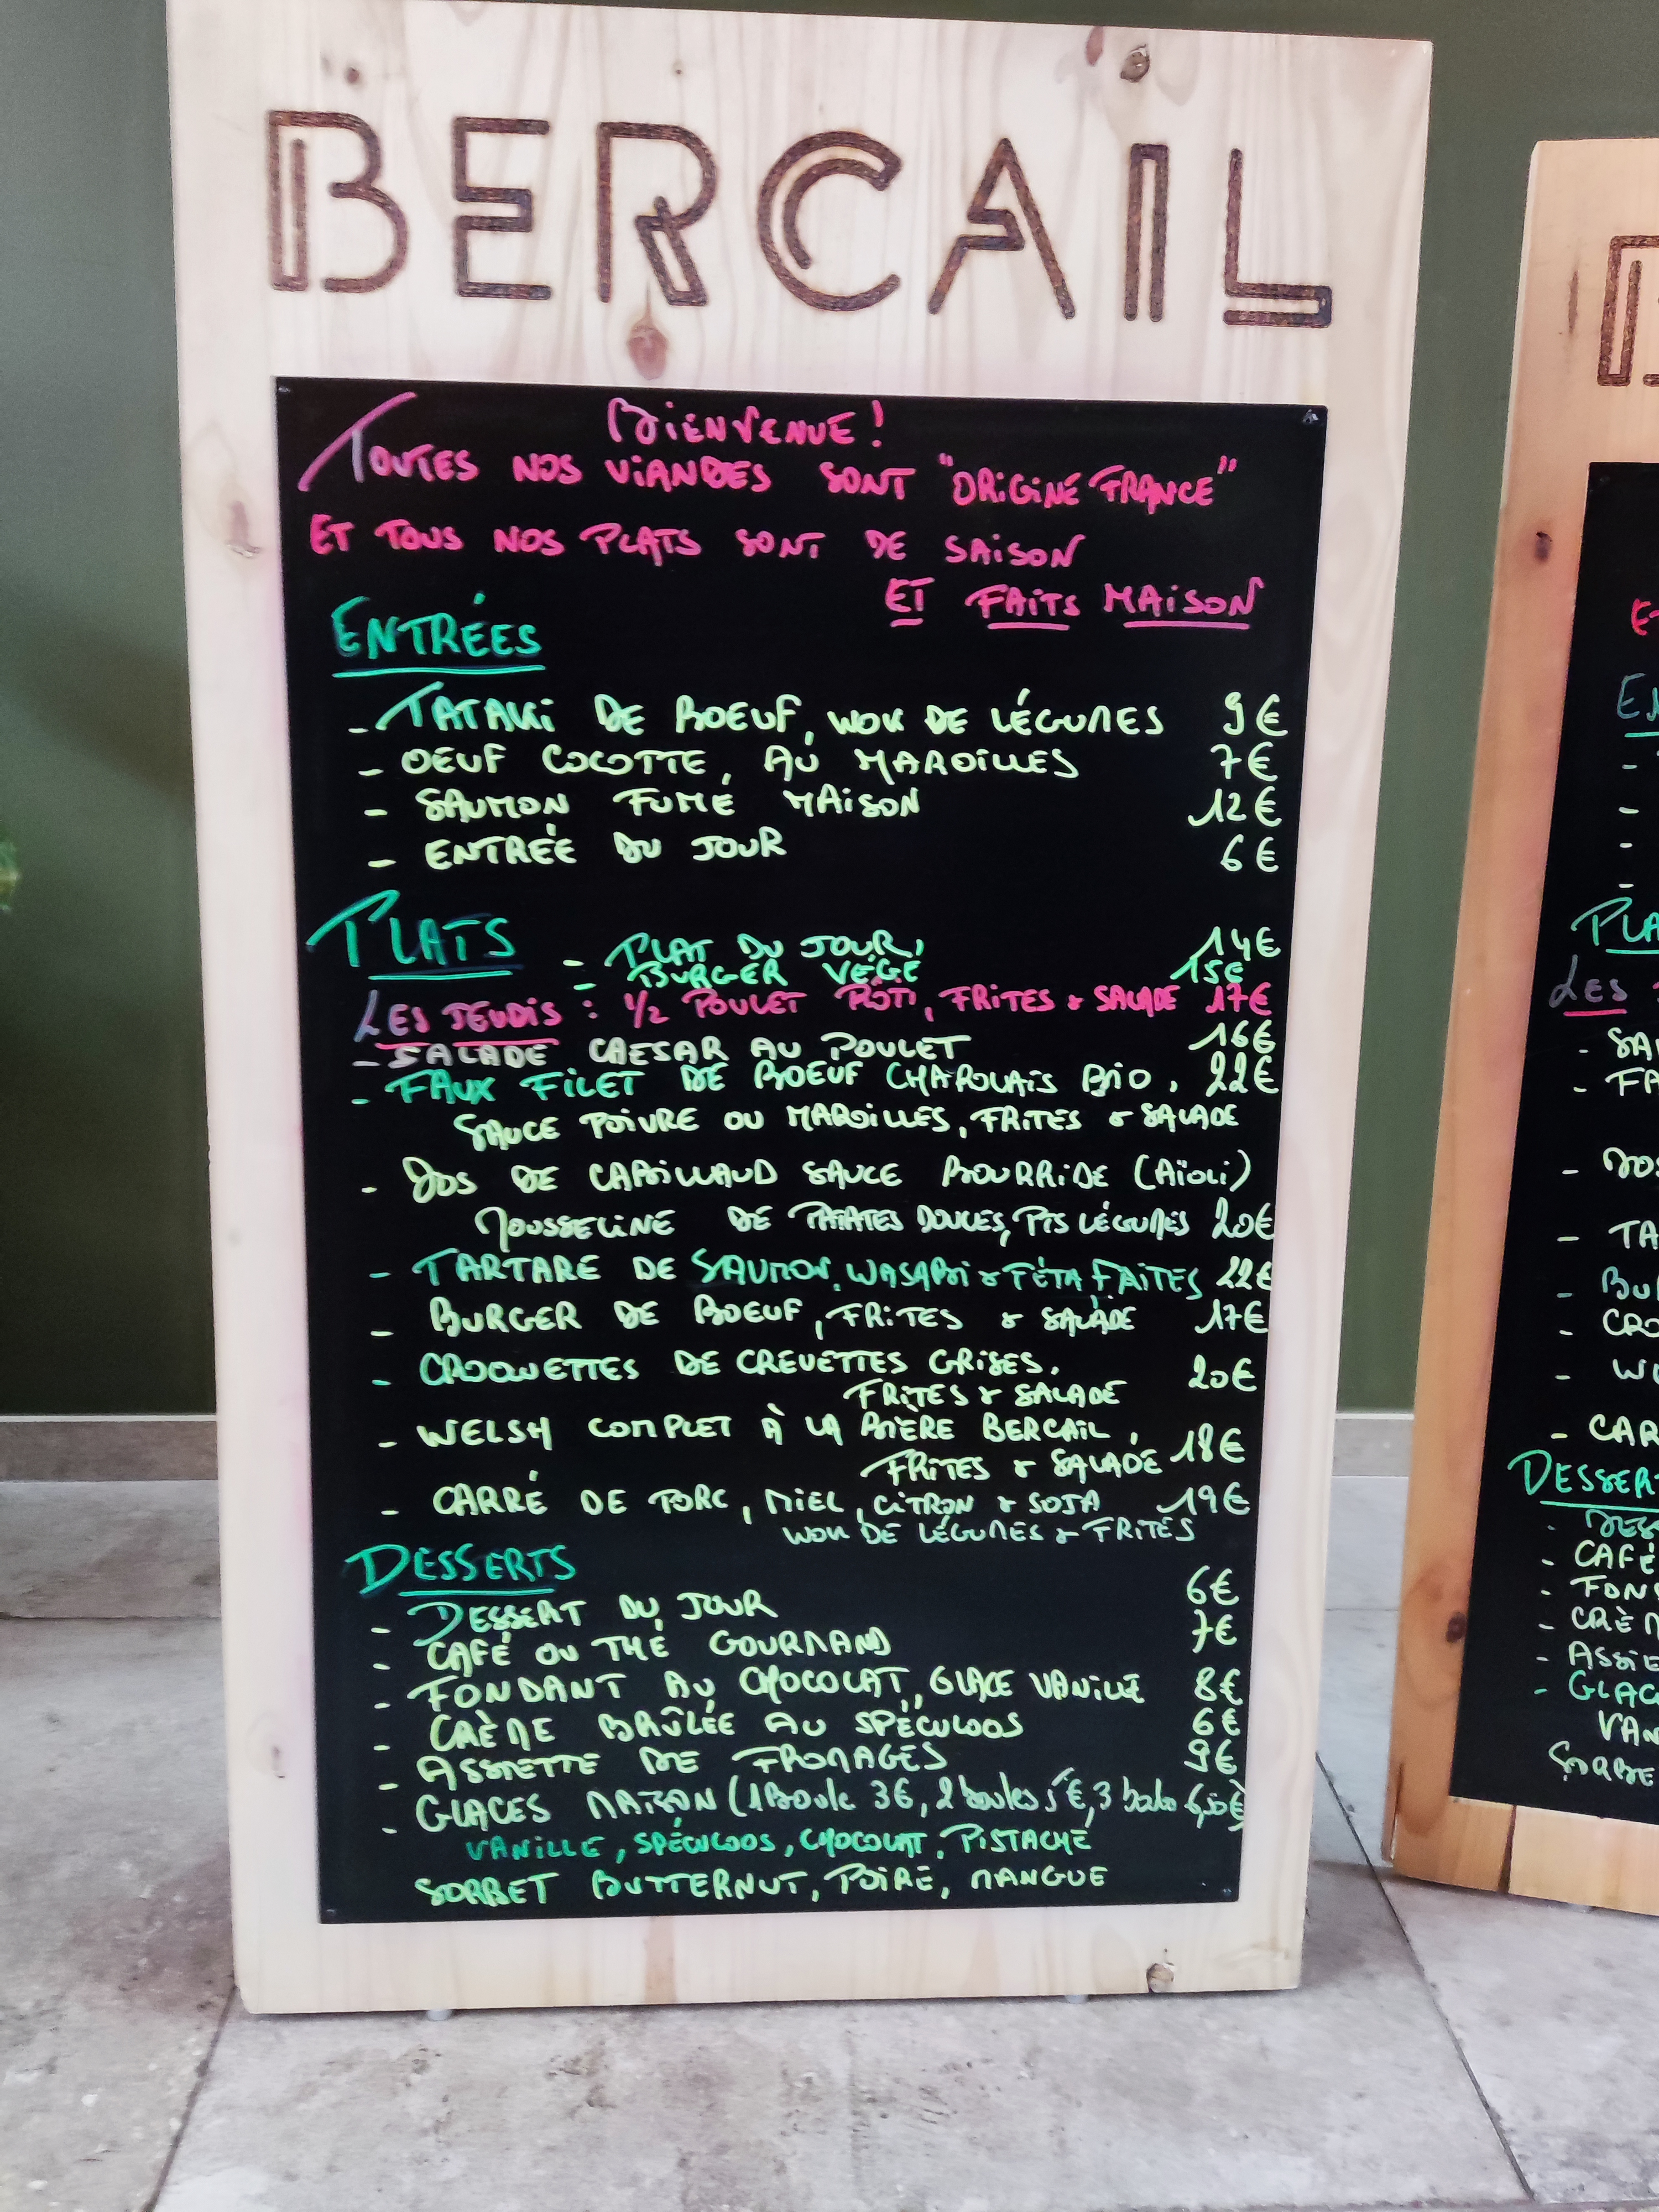 BERCAIL
BIENVENUE !
TOUTES NOS VIANDES SONT "ORIGINE FRANCE"
ET TOUS NOS PLATS SONT DE SAISON
ET FAITS MAISON
ENTRÉES
- TATAKI DE BOEUF, WOK DE LÉGUMES 9€
- OEUF COCOTTE, AU MAROILLES 7€
- SAUMON FUMÉ MAISON 12€
- ENTRÉE DU JOUR 6€
PLATS
- PLAT DU JOUR, 14€
- BURGER VÉGÉ 15€
LES JEUDIS : 1/2 POULET RÔTI, FRITES & SALADE 17€
- SALADE CAESAR AU POULET 16€
- FAUX FILET DE BOEUF CHAROLAIS BIO, 22€
SAUCE POIVRE OU MAROILLES, FRITES & SALADE
- DOS DE CABILLAUD SAUCE BOURRIDE (AÏOLI)
MOUSSELINE DE PATATES DOUCES, PTS LÉGUMES 20€
- TARTARE DE SAUMON, WASABI & FÉTA FAITES 22€
- BURGER DE BOEUF, FRITES & SALADE 17€
- CROQUETTES DE CREVETTES GRISES, 20€
FRITES & SALADE
- WELSH COMPLET À LA BIÈRE BERCAIL, 18€
FRITES & SALADE
- CARRÉ DE PORC, MIEL, CITRON & SOJA 19€
WOK DE LÉGUMES & FRITES
DESSERTS
- DESSERT DU JOUR 6€
- CAFÉ OU THÉ GOURMAND 7€
- FONDANT AU CHOCOLAT, GLACE VANILLE 8€
- CRÈME BRÛLÉE AU SPÉCULOOS 6€
- ASSIETTE DE FROMAGES 9€
- GLACES MAISON (1 Boule 3€, 2 boules 5€, 3 boules 6,50€)
VANILLE, SPÉCULOOS, CHOCOLAT, PISTACHE
SORBET BUTTERNUT, POIRE, MANGUE
LES
- TA
- CAR
- CAFÉ